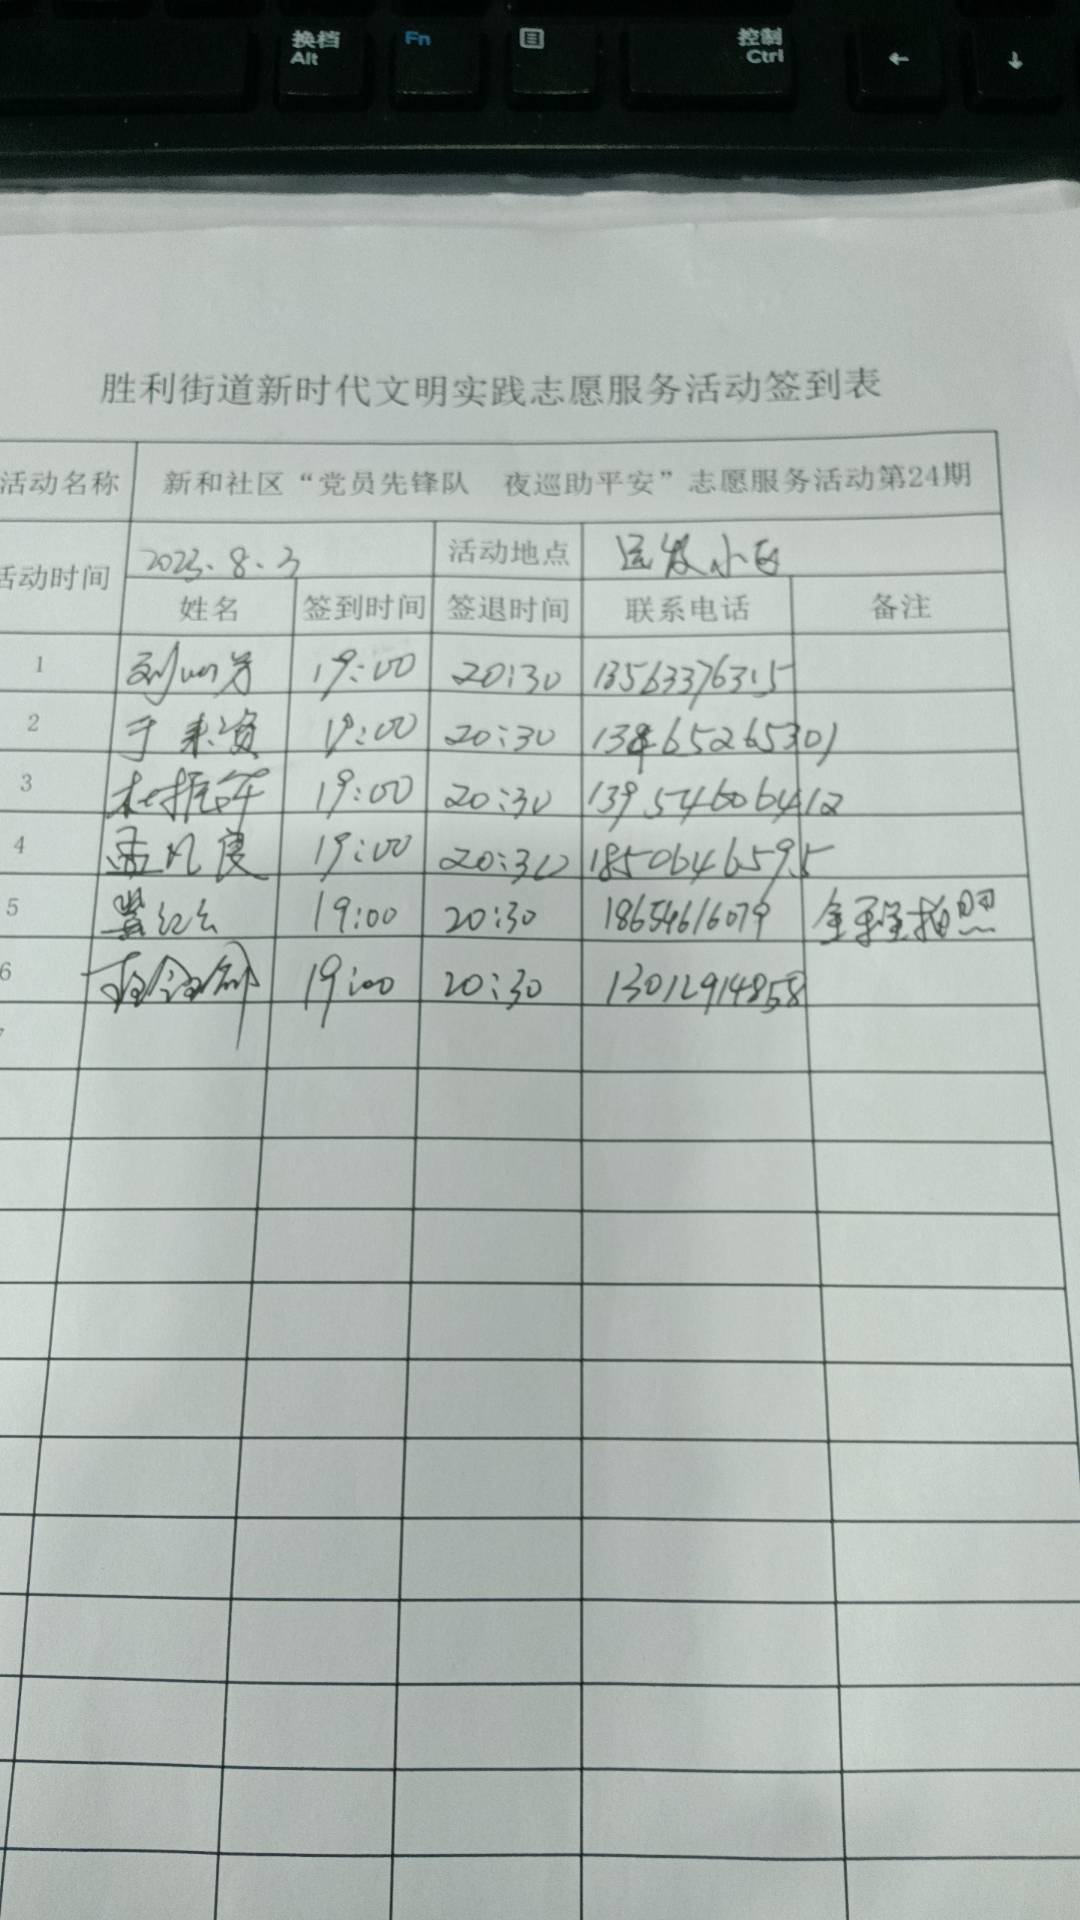 换档 Fn 控制
Alt Ctrl
胜利街道新时代文明实践志愿服务活动签到表
活动名称 新和社区“党员先锋队 夜巡助平安”志愿服务活动第24期
活动时间 2023.8.3 活动地点 运发小区
姓名 签到时间 签退时间 联系电话 备注
1 19:00 20:30 13563376315
2 于来资 19:00 20:30 138465265301
3 杜振华 19:00 20:30 13954606412
4 孟凡良 19:00 20:30 18506466595
5 19:00 20:30 18654616079 全程拍照
6 19:00 20:30 13012914858
7